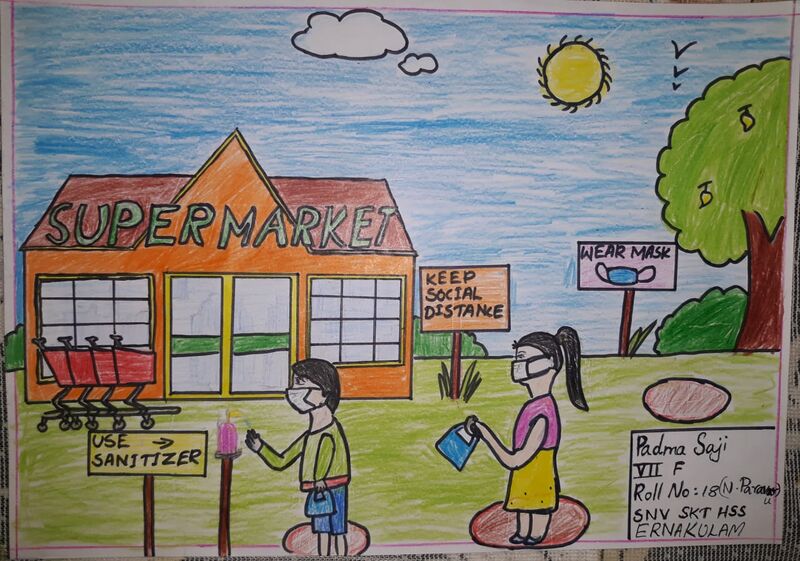 SUPERMARKET
WEAR MASK
KEEP
SOCIAL
DISTANCE
USE →
SANITIZER
Padma Saji
VII F
Roll No: 18 (N.
SNV SKT HSS
ERNAKULAM